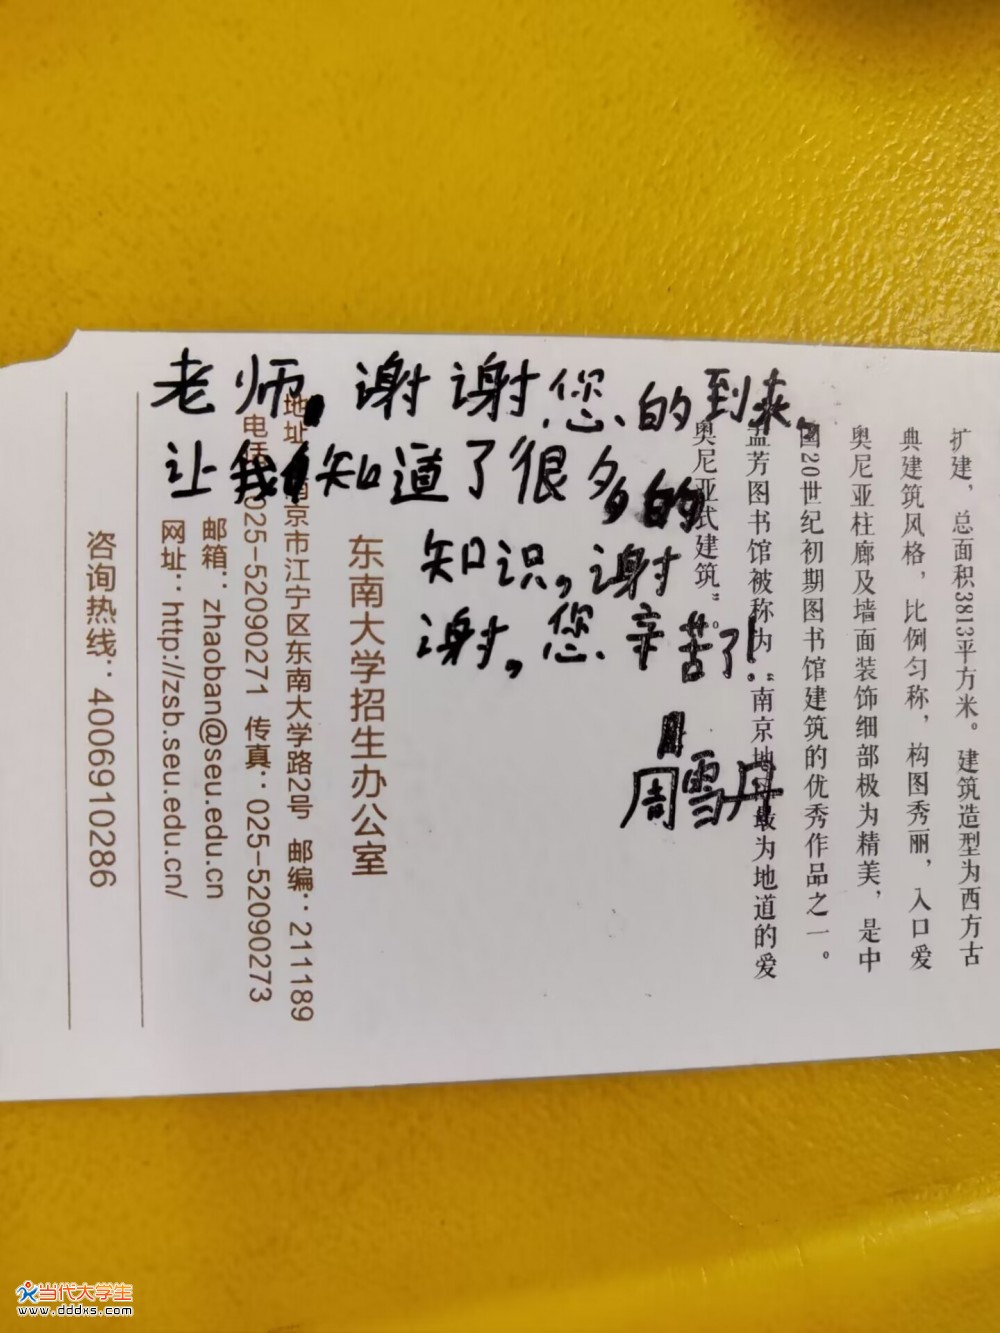 老师，谢谢您的到来，
让我们知道了很多的
知识，谢
谢，您辛苦了！
周雪丹
扩建，总面积3813平方米。建筑造型为西方古
典建筑风格，比例匀称，构图秀丽，入口爱
奥尼亚柱廊及墙面装饰细部极为精美，是中
国20世纪初期图书馆建筑的优秀作品之一。
孟芳图书馆被称为“南京地区最为地道的爱
奥尼亚式建筑”。
东南大学招生办公室
地址：南京市江宁区东南大学路2号 邮编：211189
电话：025-52090271 传真：025-52090273
邮箱：zhaoban@seu.edu.cn
网址：http://zsb.seu.edu.cn/
咨询热线：4006910286
当代大学生
www.dddxs.com